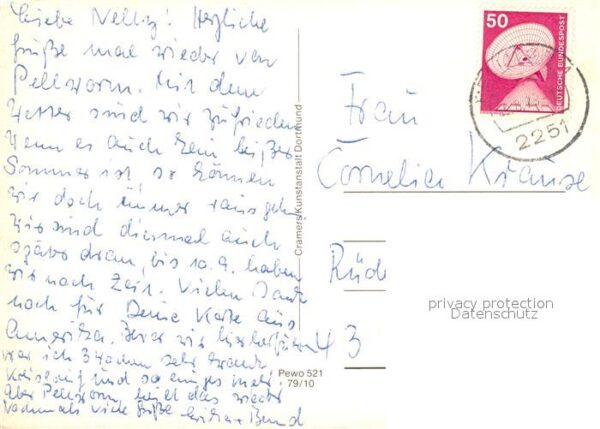 Liebe Nelly! Herzliche
Grüße mal wieder von
Pellworm. Mit dem
Wetter sind wir zufrieden
Wenn es auch kein heißer
Sommer ist so können
wir doch immer raus gehen.
Wir sind diesmal auch
später dran, bis 10.9. haben
wir noch Zeit. Vielen Dank
noch für Deine Karte aus
Amerika. Bevor wir hierher fuhren
war ich 3 Wochen sehr krank,
Kreislauf und so einiges mehr.
Aber Pellworm, heilt das wieder
Nochmals viele Grüße
Cramers/Kunstanstalt Dortmund
Pewo 521
79/10
50
DEUTSCHE BUNDESPOST
2251
Frau
Cornelia Krause
Rüd
43
privacy protection
Datenschutz